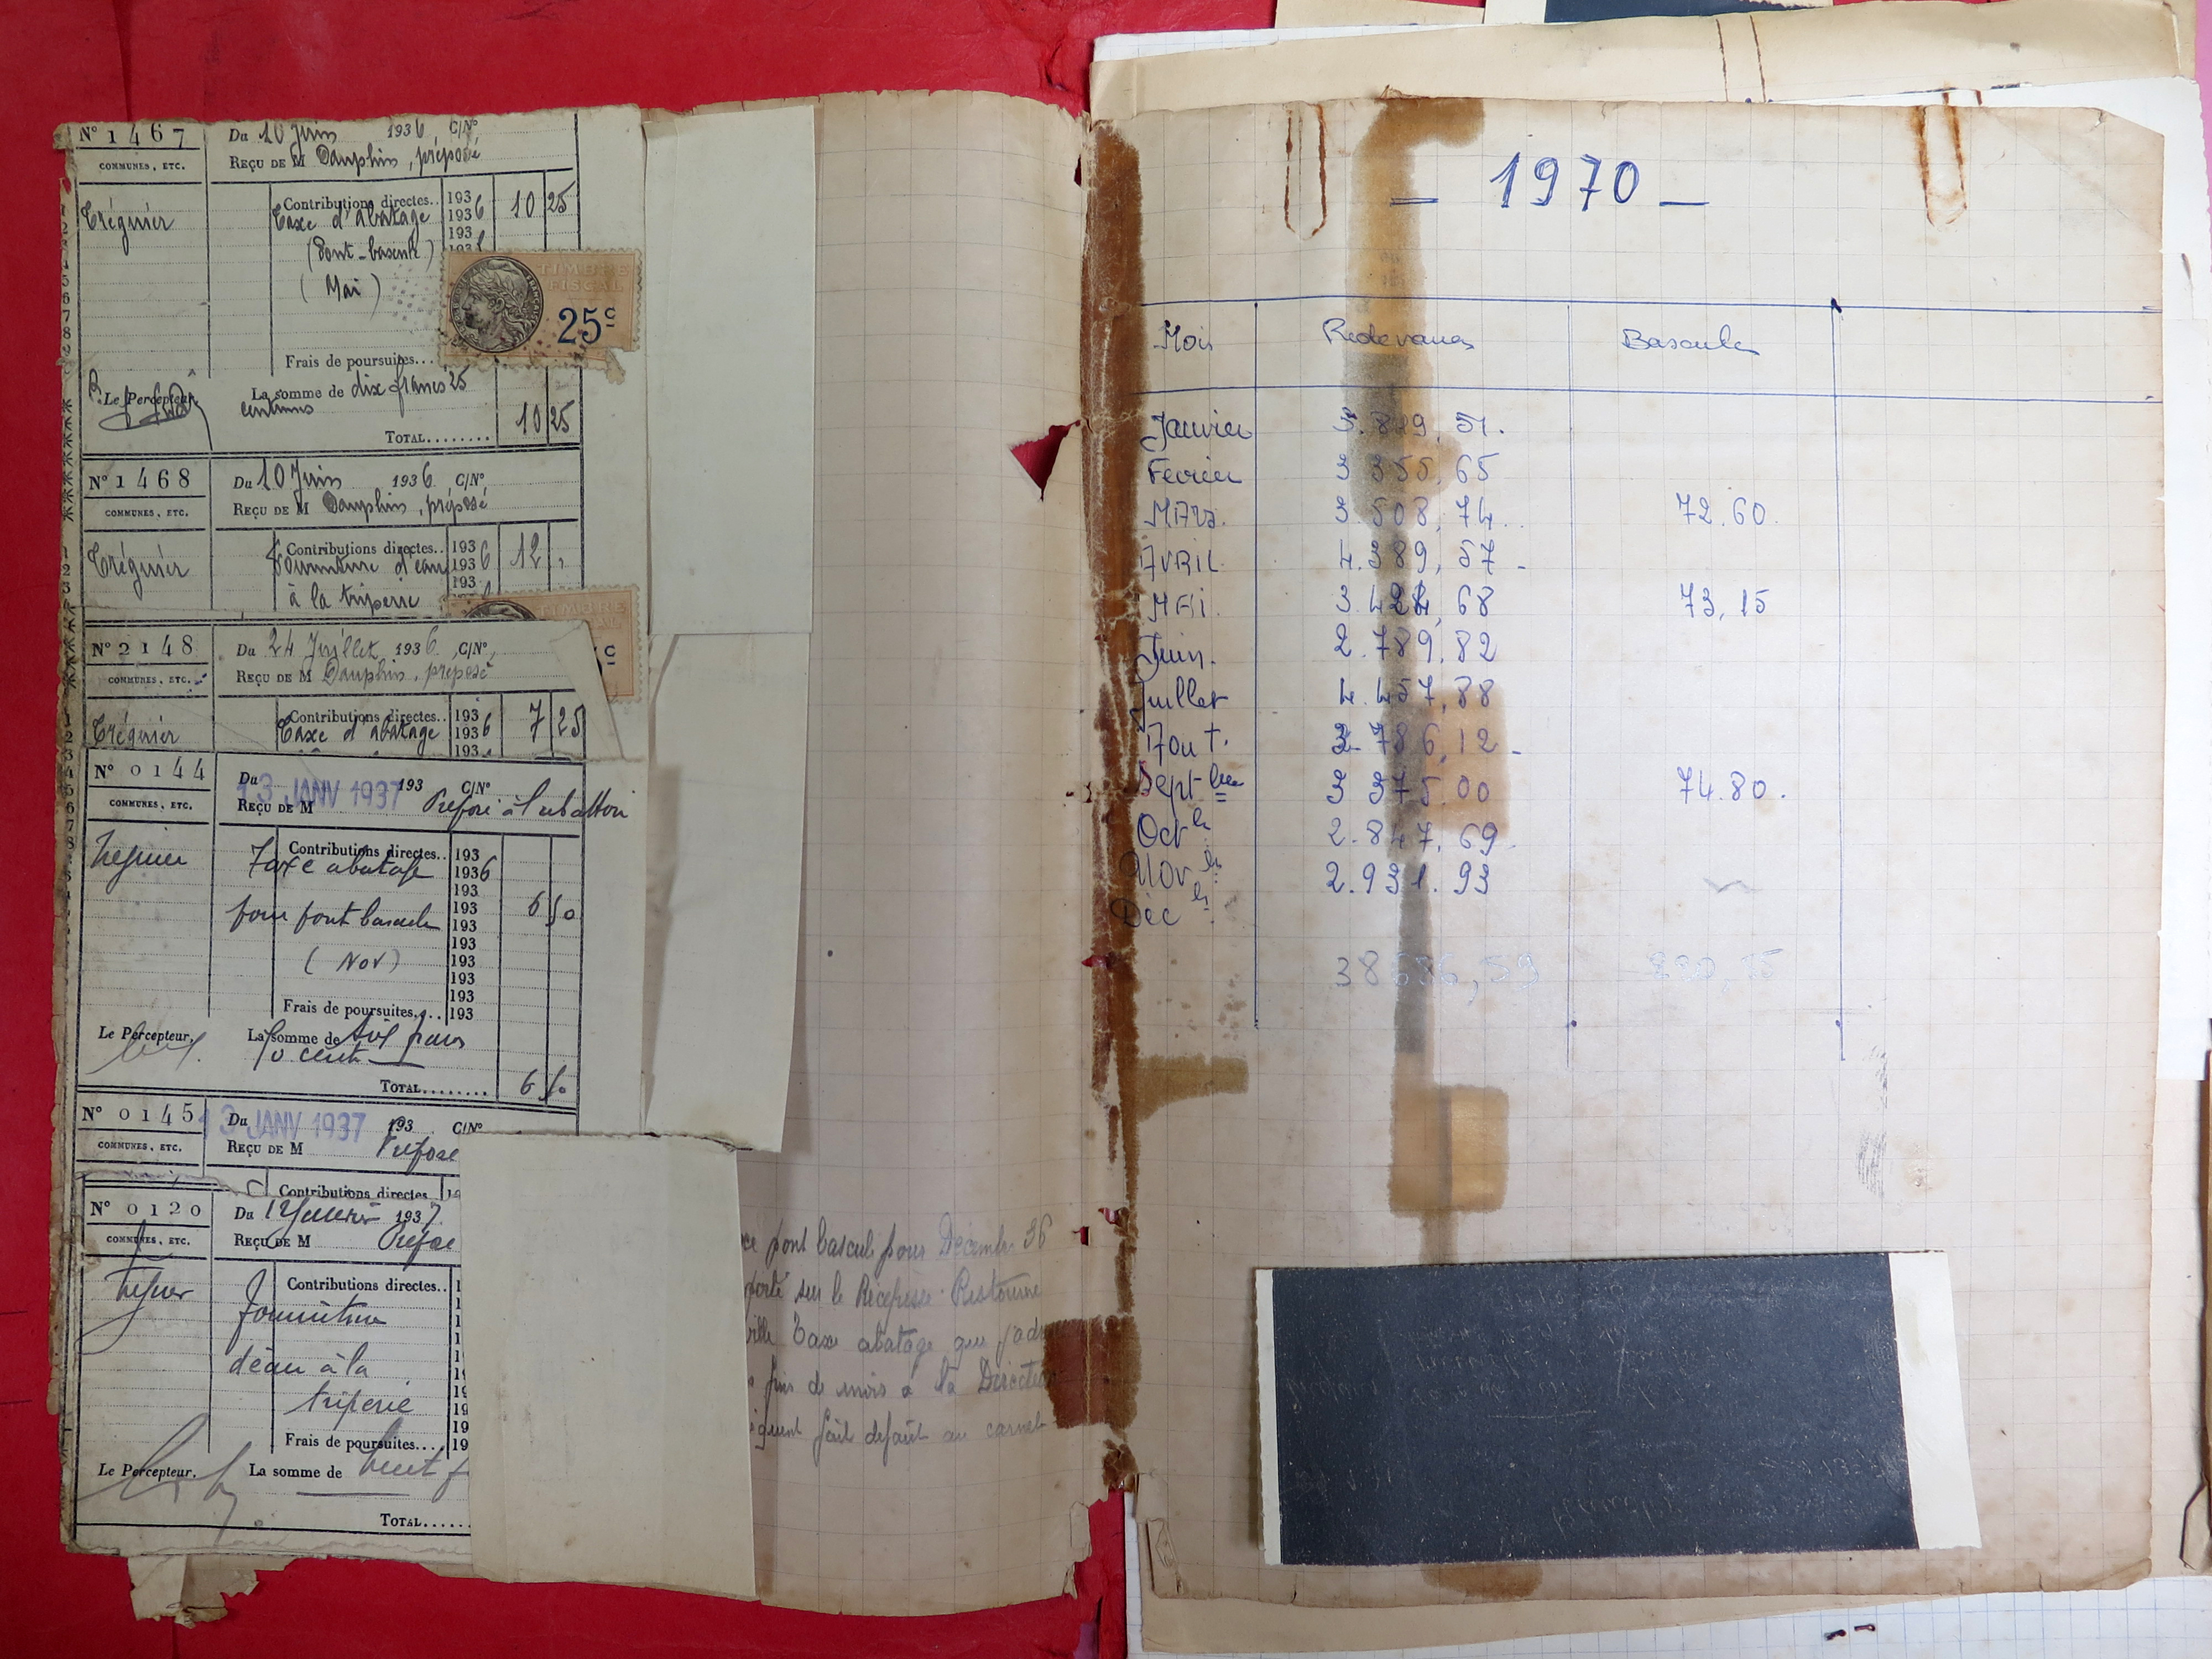 N° 1467
Du 10 Juin 1936 C/N°
COMMUNES, ETC.
REÇU DE M Dauphin, préposé
Tréguier
Contributions directes.. 193
Taxe d'abatage 1936 10 25
193
(Pont-bascule) 193
(Mai)
TIMBRE FISCAL
25c
Frais de poursuites...
Le Percepteur,
La somme de dix francs 25
centimes
10 25
TOTAL........
N° 1468
Du 10 Juin 1936 C/N°
COMMUNES, ETC.
REÇU DE M Dauphin, préposé
Tréguier
Contributions directes.. 1936 12 "
Fourniture d'eau 1936
193
à la triperie
TIMBRE
N° 2148
Du 24 Juillet 1936 C/N°
COMMUNES, ETC.
REÇU DE M Dauphin, préposé
Tréguier
Contributions directes.. 193
Taxe d'abatage 1936 7 25
193
N° 0144
Du 13 JANV 1937 193 C/N°
COMMUNES, ETC.
REÇU DE M Préposé à l'abattoir
Contributions directes.. 193
Taxe abatage 1936
193
pour pont bascule 193 6 50
193
193
(Nov) 193
193
193
Frais de poursuites... 193
Le Percepteur,
La somme de Six francs
50 cent
TOTAL........ 6 50
N° 0145
Du 13 JANV 1937 193 C/N°
COMMUNES, ETC.
REÇU DE M Préposé
Contributions directes
N° 0120
Du 12 1937
COMMUNES, ETC.
REÇU DE M Préposé
Contributions directes..
Fourniture
d'eau à la
triperie
Frais de poursuites... 19
Le Percepteur,
La somme de huit f
TOTAL.....
pont bascule pour Décembre 36
porté sur le Récépissé Ristourne
ville Taxe abatage que j'ad
fin de mois à la Direct
quent fait défaut au carnet
— 1970 —
Mois Redevances Bascule
Janvier 3.829,51.
Février 3 355,65
MARS. 3.508,74. 72.60
AVRIL 4.389,57-
MAI. 3.424,68 73,15
Juin. 2.789,82
Juillet 4.457,88
Aout. 2.786,12-
Septbre 3 375.00 74.80.
Octbre 2.847,69.
Novbre 2.931.93
Décbre